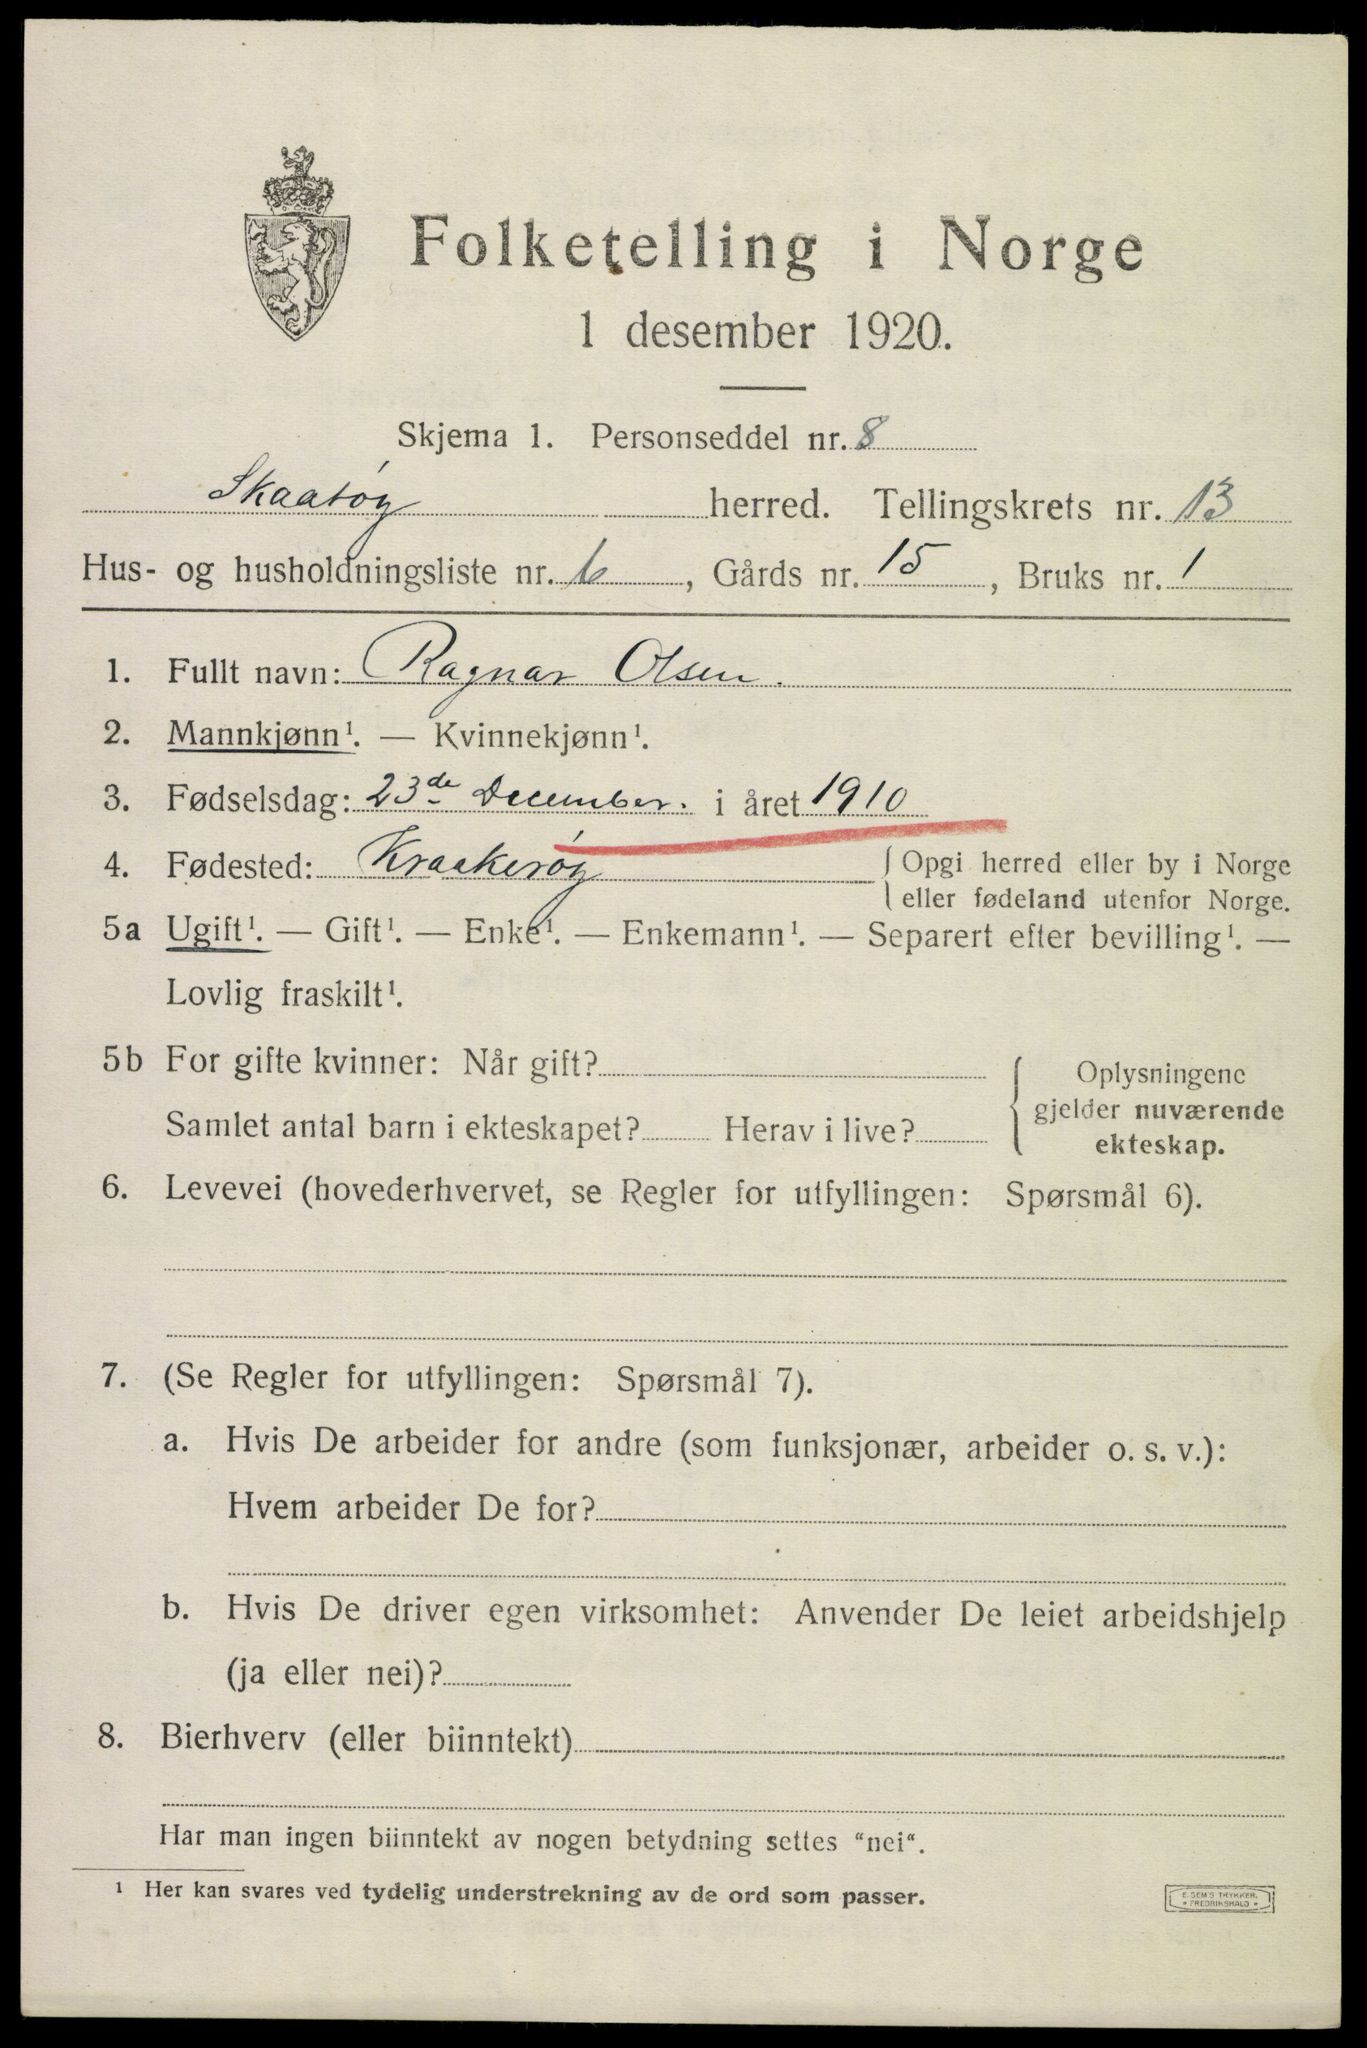 Folketelling i Norge
1 desember 1920.
Skjema 1. Personseddel nr. 8
Skaatøy herred. Tellingskrets nr. 13
Hus- og husholdningsliste nr. 6, Gårds nr. 15, Bruks nr. 1
1. Fullt navn: Ragnar Olsen.
2. Mannkjønn¹. — Kvinnekjønn¹.
3. Fødselsdag: 23de December. i året 1910
4. Fødested: Kraakerøy { Opgi herred eller by i Norge
eller fødeland utenfor Norge.
5a Ugift¹. — Gift¹. — Enke¹. — Enkemann¹. — Separert efter bevilling¹. —
Lovlig fraskilt¹.
5b For gifte kvinner: Når gift?
Samlet antal barn i ekteskapet? Herav i live?
{ Oplysningene
gjelder nuværende
ekteskap.
6. Levevei (hovederhvervet, se Regler for utfyllingen: Spørsmål 6).
7. (Se Regler for utfyllingen: Spørsmål 7).
a. Hvis De arbeider for andre (som funksjonær, arbeider o. s. v.):
Hvem arbeider De for?
b. Hvis De driver egen virksomhet: Anvender De leiet arbeidshjelp
(ja eller nei)?
8. Bierhverv (eller biinntekt)
Har man ingen biinntekt av nogen betydning settes "nei".
¹ Her kan svares ved tydelig understrekning av de ord som passer.
E. SEM'S TRYKKER.
FREDRIKSHALD